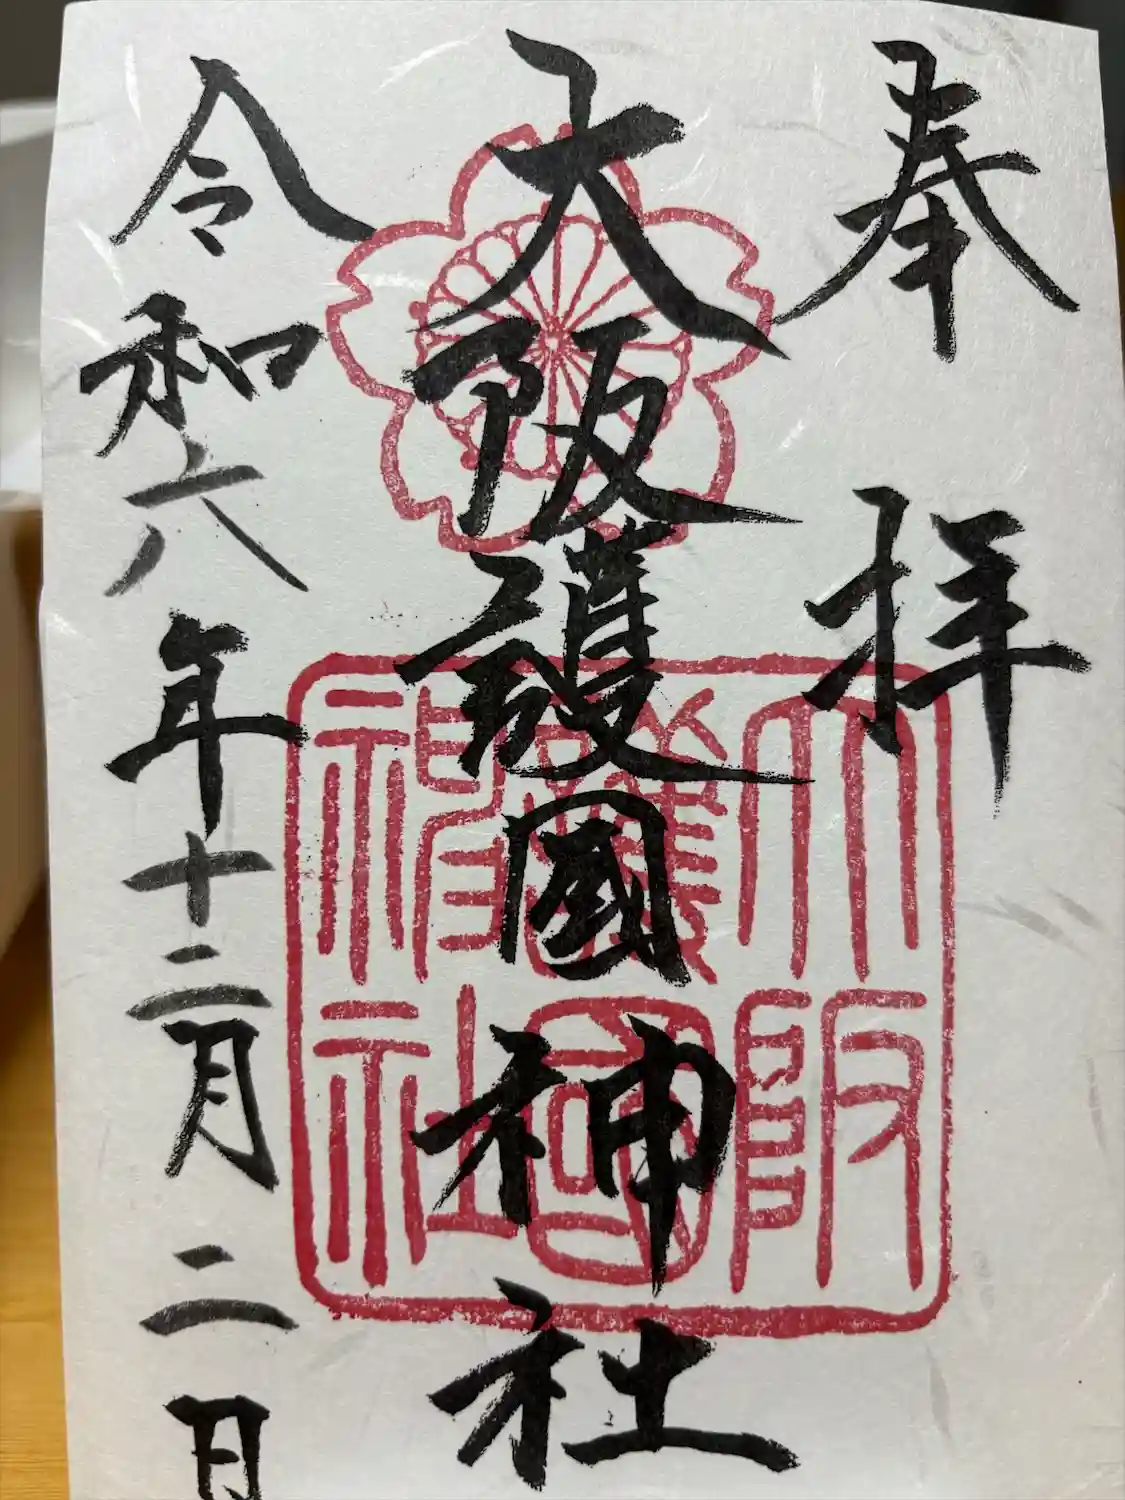 奉拝
大阪護國神社
大阪護國神社
令和六年十二月二日